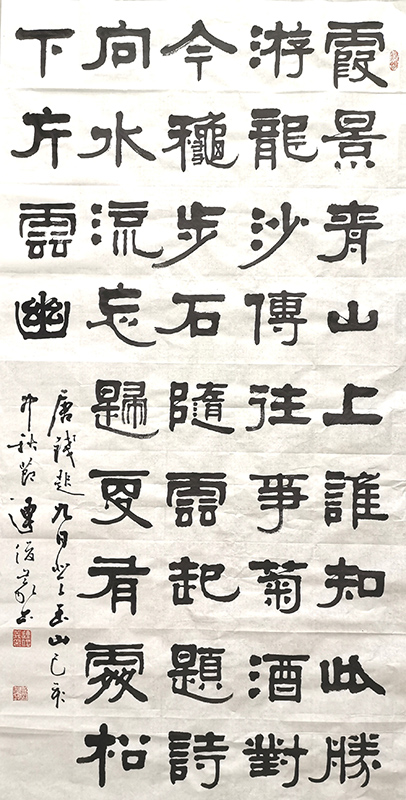 霞景青山上誰知此勝
游龍沙傳往事菊酒對
今龝步石隨雲起題詩
向水流忘歸更有處松
下片雲幽
唐錢起九日登玉山己亥
中秋節連俊書